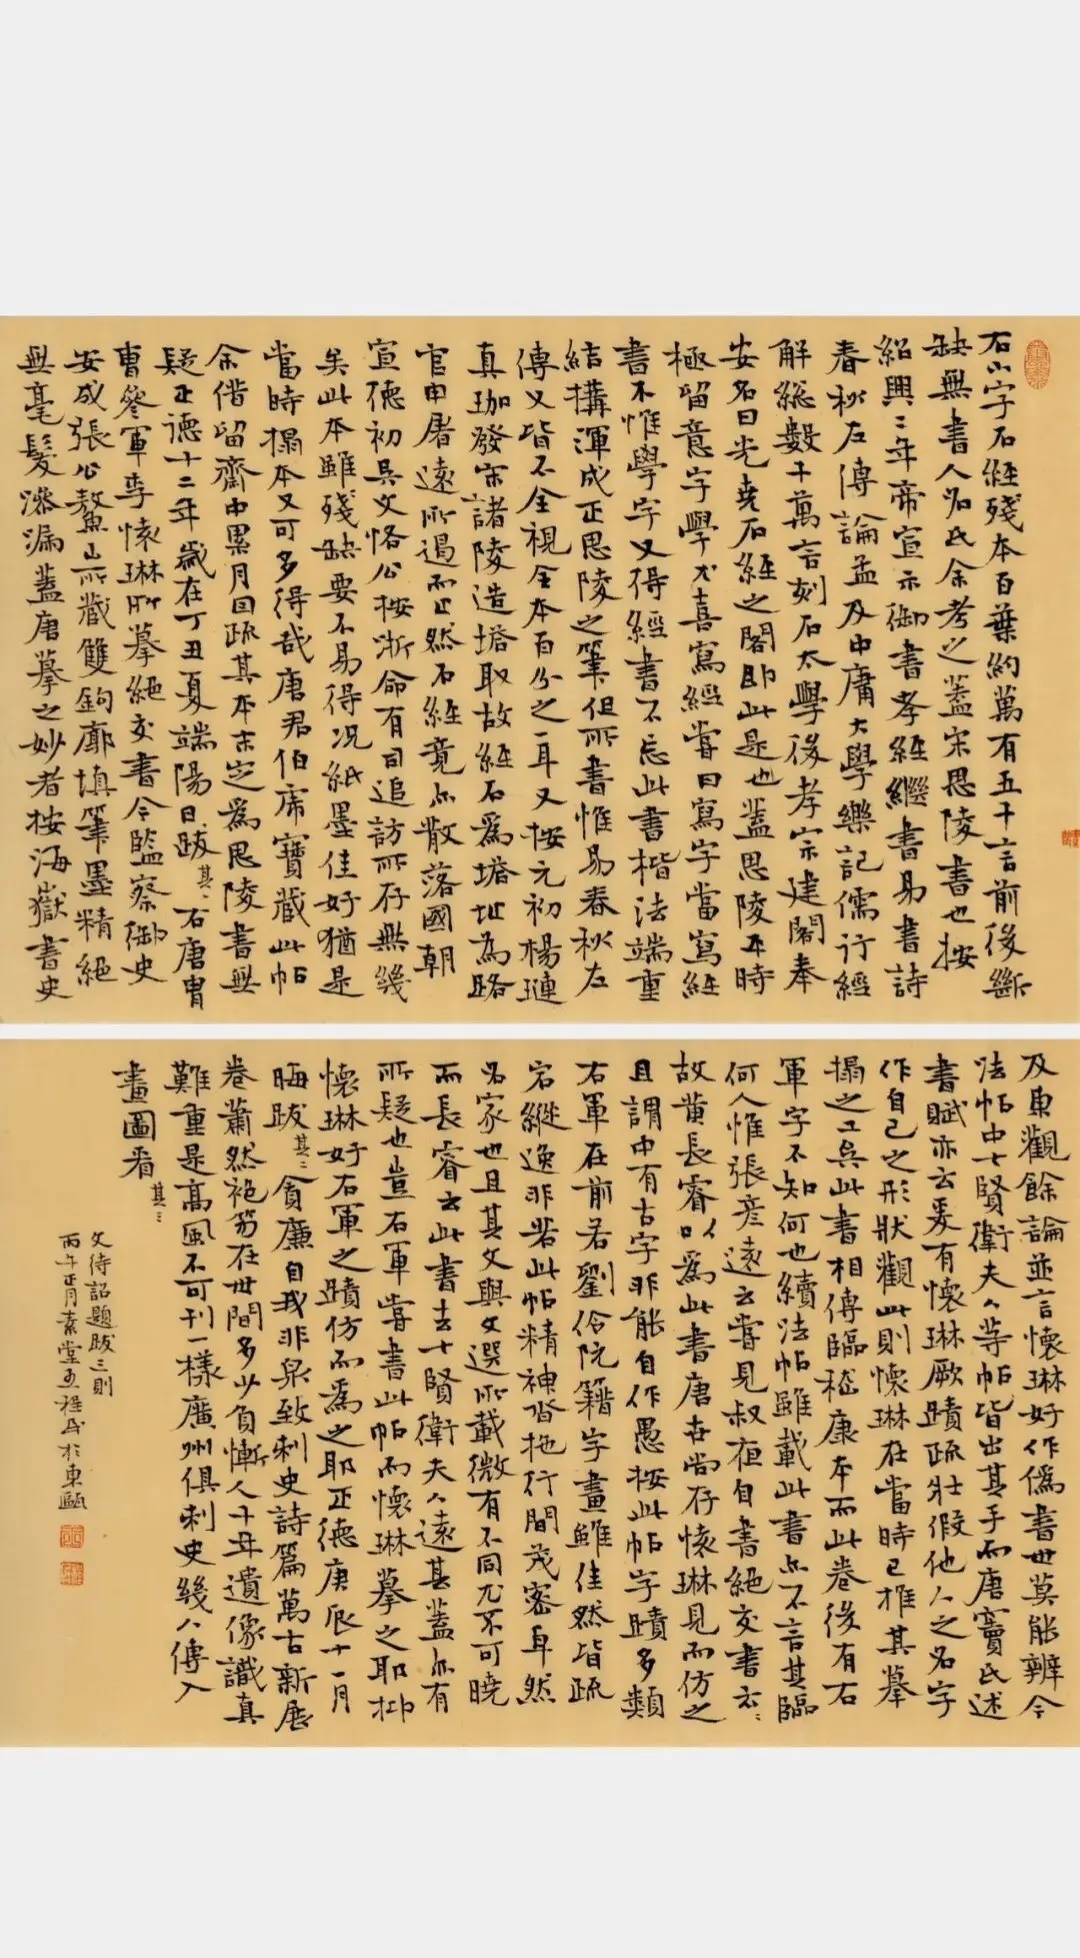 右小字石經殘本百葉約萬有五千言前後斷
缺無書人名氏余考之蓋宋思陵書也按
紹興二年帝宣示御書孝經繼書易書詩
春秋左傳論孟及中庸大學樂記儒行經
解總數十萬言刻石太學後孝宗建閣奉
安名曰光堯石經之閣即此是也蓋思陵平時
極留意字學尤喜寫經嘗曰寫字當寫經
書不惟學字又得經書不忘此書楷法端重
結構渾成正思陵之筆但所書惟易春秋左
傳又皆不全視全本百分之一耳又按元初楊璉
真珈發宋諸陵造塔取故經石為塔址為路
官申屠遠所遏而止然石經竟亦散落國朝
宣德初吳文恪公按浙命有司追訪所存無幾
矣此本雖殘缺要不易得況紙墨佳好猶是
當時搨本又可多得哉唐君伯虎寶藏此帖
余借留齋中累月因疏其本末定為思陵書無
疑正德十二年歲在丁丑夏端陽日跋 其一 右唐胄
曹參軍李懷琳所摹絕交書今監察御史
安成張公鰲山所藏雙鉤廓填筆墨精絕
無毫髮滲漏蓋唐摹之妙者按海嶽書史
及東觀餘論並言懷琳好作偽書世莫能辨今
法帖中七賢衛夫人等帖皆出其手而唐竇氏述
書賦亦云爰有懷琳厥蹟疏壯假他人之名字
作自己之形狀觀此則懷琳在當時已推其摹
搨之工矣此書相傳臨嵇康本而此卷後有右
軍字不知何也續法帖雖載此書亦不言其臨
何人惟張彥遠云嘗見叔夜自書絕交書云云
故黃長睿以為此書唐世尚存懷琳見而仿之
且謂中有古字非能自作愚按此帖字蹟多類
右軍在前若劉伶阮籍字畫雖佳然皆疏
宕縱逸非若此帖精神沓拖行間茂密耳然
名家也且其文與文選所載微有不同尤不可曉
而長睿云此書去七賢衛夫人遠甚蓋亦有
所疑也豈右軍嘗書此帖而懷琳摹之耶抑
懷琳好右軍之蹟仿而為之耶正德庚辰十一月
晦跋 其二 貪廉自我非泉致刺史詩篇萬古新展
卷蕭然袍笏在世間多少負慚人千年遺像識真
難重是高風不可刊一樣廣州俱刺史幾人傳入
畫圖看 其三
文待詔題跋三則
丙午正月素堂孟程書於東甌